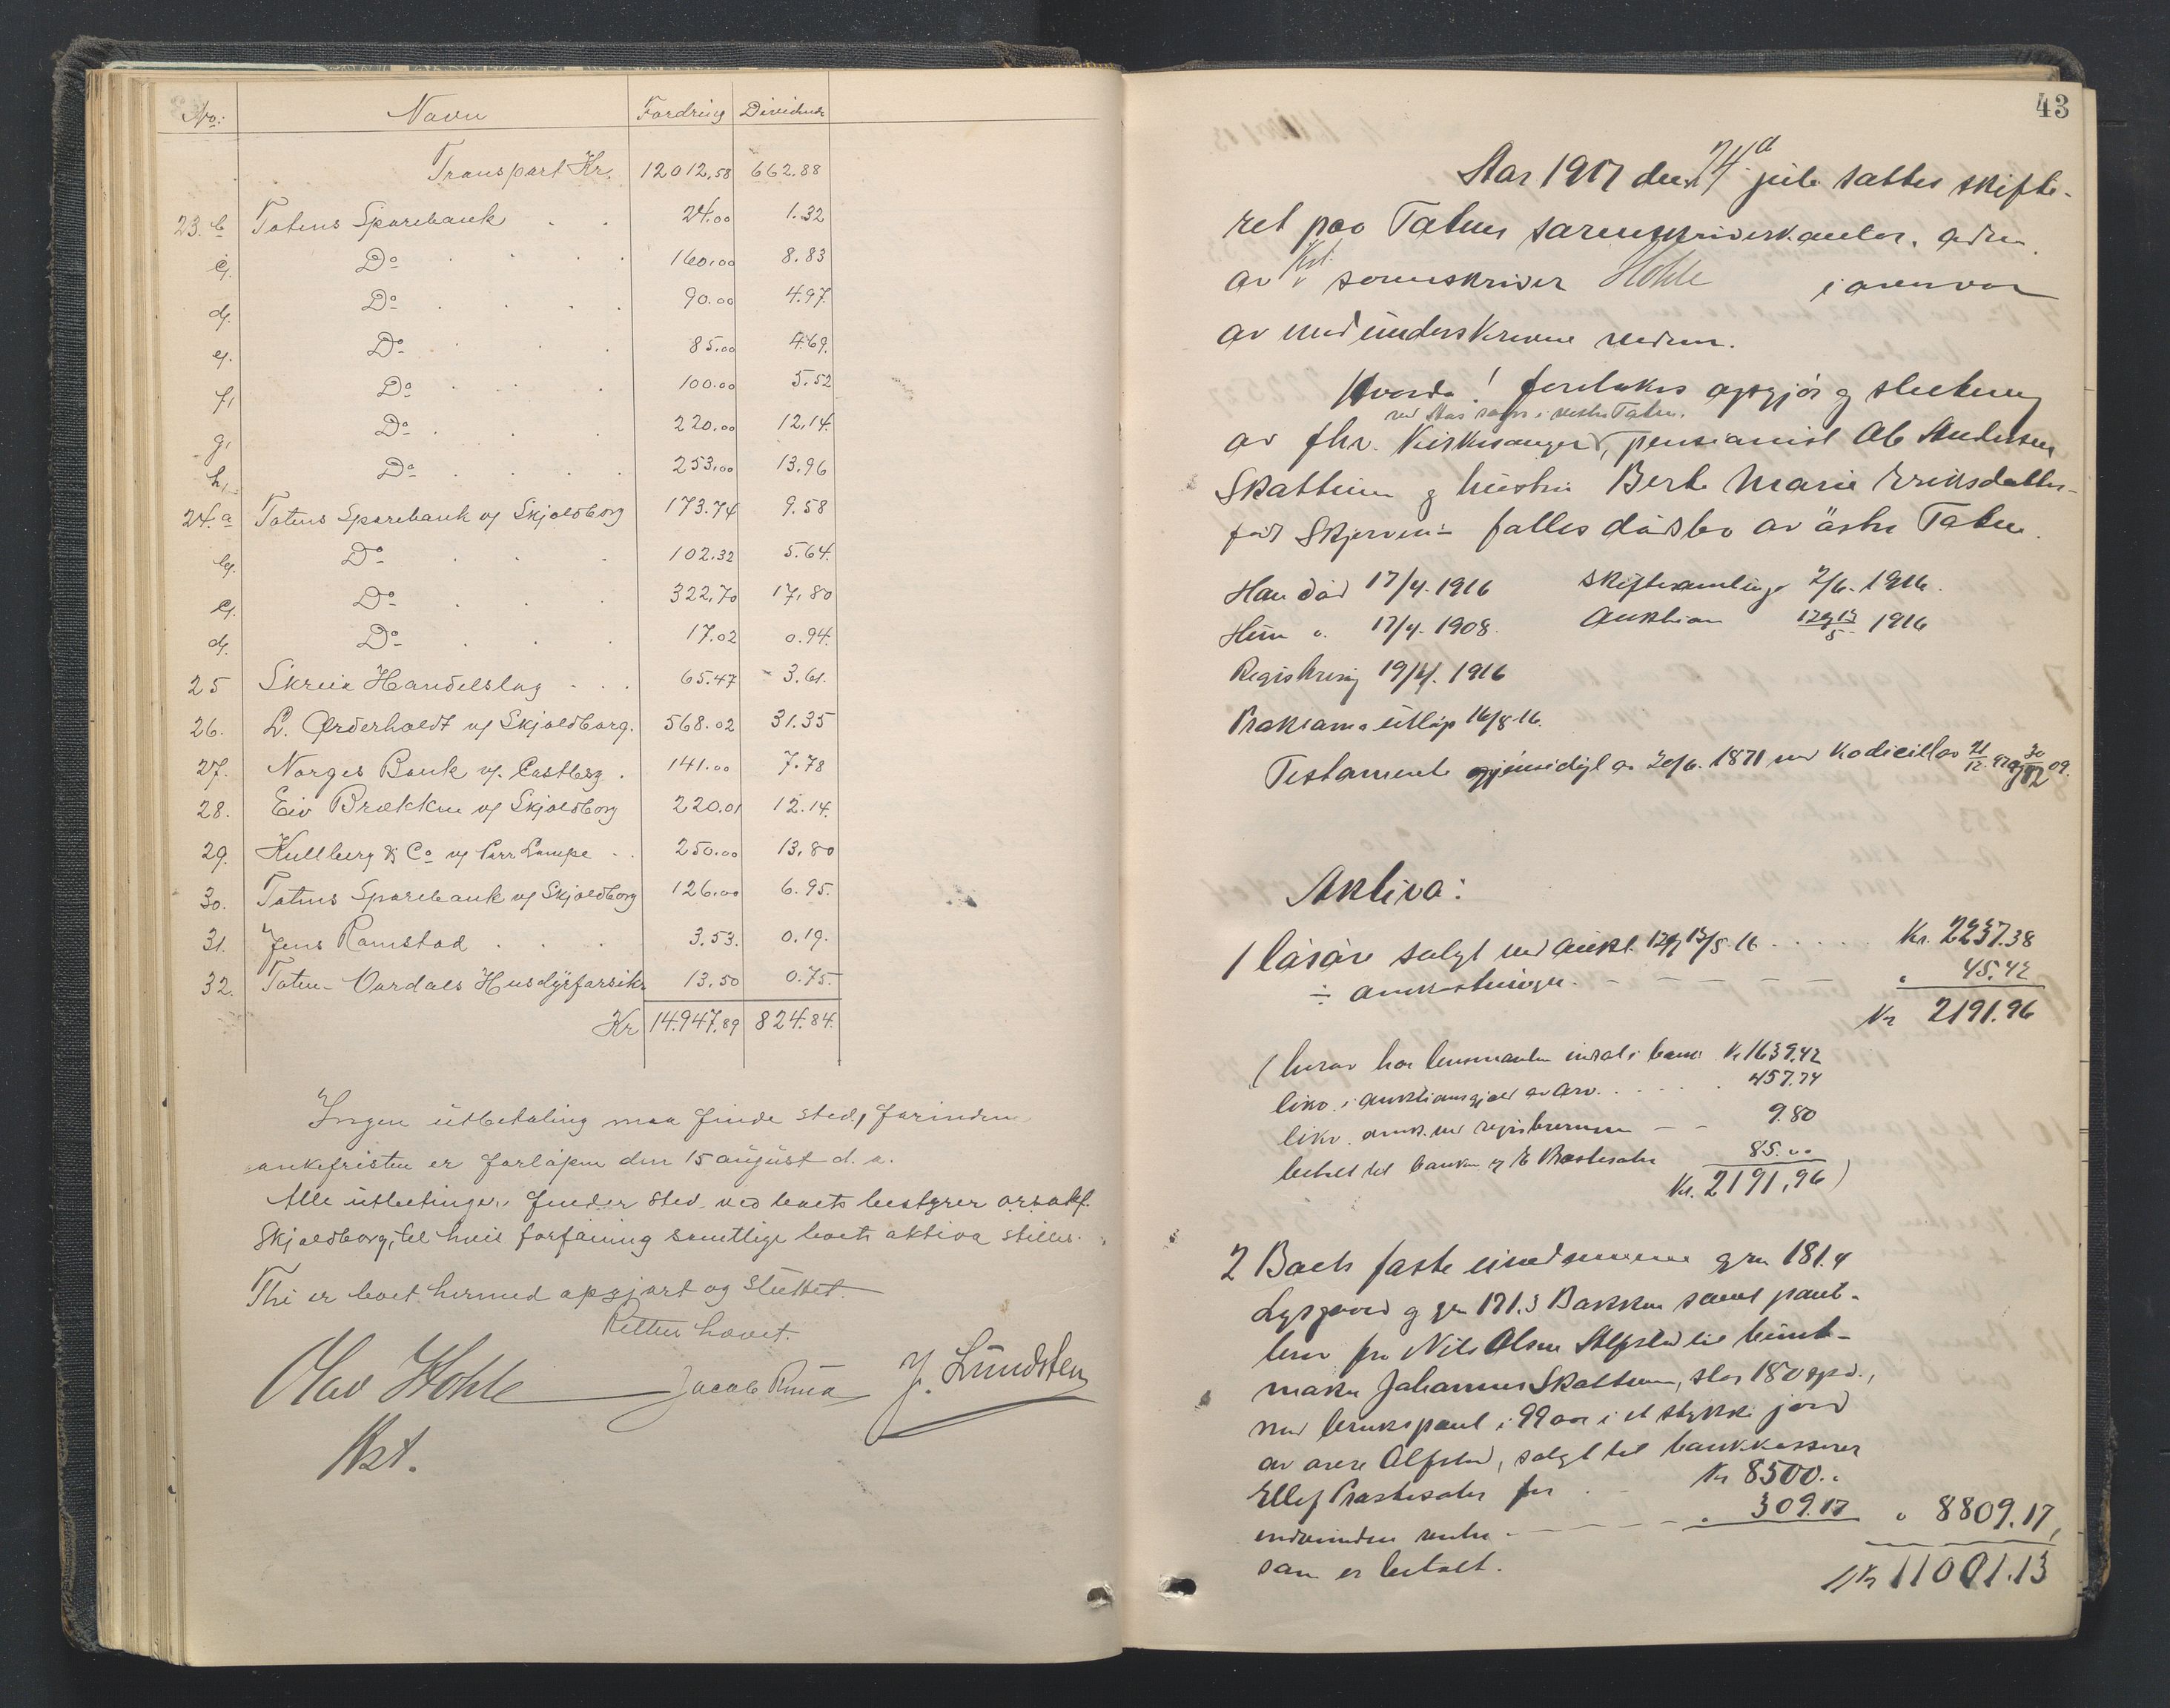 No: Navn Fordring Dividende
Transport Kr. 12012,58 662.88
23. b Totens Sparebank 24.00 1.32
c. Do 160.00 8.83
d. Do 90.00 4.97.
e. Do 85.00 4.69.
f. Do 100.00 5.52
g. Do 220.00 12.14.
h. Do 253.00 13.96
24. a Totens Sparebank v/ Skjoldborg 173.74 9.58
b. Do 102.32 5.64.
c. Do 322.70 17,80
d. Do 17.02 0.94.
25 Skreia Handelslag 65.47 3.61.
26. L. Ørderholdt v/ Skjoldborg. 568.02 31.35
27. Norges Bank v/. Castberg. 141.00 7.78
28. Eiv Brækken v/ Skjoldborg 220.01 12.14.
29. Kullberg & Co v/ Parr Lampe 250.00 13,80
30. Totens Sparebank v/ Skjoldborg 126.00 6.95.
31. Jens Ramstad 3.53. 0.19.
32. Toten-Vardals Husdyrforsik. 13.50 0.75.
Kr 14.947.89 824.84.
Ingen utbetaling maa finde sted, forinden
ankefristen er forløpen den 15 august d. a.
Alle utbetinger finder sted ved boets bestyrer o.r.sakf.
Skjoldborg, til hvis forføining samtlige boets aktiva stilles.
Thi er boet hermed opgjort og sluttet.
Retten hævet.
Olav Hohle Jacob Rura J. Lundsten
Kst.
43
Aar 1917 den 24d juli sattes skifte-
ret paa Toten sorenskriverkontor. adm.
av Kst. sorenskriver Hohle i overvær
av medunderskrevne vidner.
Hvorda! foretokes opgjør og slutning
ved Aas sogn i vestre Toten.
av fhv. Kirkesanger, pensionist Ole Andersen
Skattum og hustru Berte Marie Eriksdatter
født Skjerven's fælles dødsbo av østre Toten.
Han død 17/4. 1916 Skiftesamling 2/6. 1916.
Hun " 17/4. 1908. Auktion 12 og 13/5 1916
Registrering 19/4. 1916
Proklama utløp 16/8 16.
Testamente gjensidigt av 20/6. 1871 med kodiciller 21/12. 97 og 30/12 09.
Aktiva:
1 løsøre solgt ved aukt. 12 og 13/5 16 Kr. 2237.38
÷ omkostninger " 45.42
Kr 2191.96
(hvrav har lensmanden indsat i bank Kr 1639.42
likv. i auktionsgjæld av arv. 457.74
likv. omk. ved registreringen 9.80
betalt til banken v/ E Prøstesæter 85.00
Kr. 2191,96)
2 Boets faste eiendomme grn 181.4
Lysgaard og grn 171.3 Bakken samt pant-
brev fra Nils Olsen Alfstad til bunt-
maker Johannes Skattum, stor 180 spd.,
med brukspant i 99 aar i et stykke jord
av øvre Alfstad, solgt til bankkasserer
Ellef Prøstesæter for Kr 8500.-
indvunden rente " 309.17 " 8809.17,
som er betalt.
Kr 11001.13